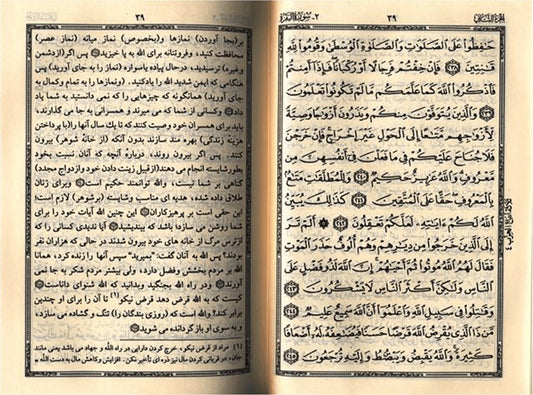 الجزء الثاني ٣٩ ٢- سورة البقرة
حَٰفِظُوا۟ عَلَى ٱلصَّلَوَٰتِ وَٱلصَّلَوٰةِ ٱلْوُسْطَىٰ وَقُومُوا۟ لِلَّهِ
قَٰنِتِينَ ٢٣٨ فَإِنْ خِفْتُمْ فَرِجَالًا أَوْ رُكْبَانًا فَإِذَآ أَمِنتُمْ
فَٱذْكُرُوا۟ ٱللَّهَ كَمَا عَلَّمَكُم مَّا لَمْ تَكُونُوا۟ تَعْلَمُونَ
٢٣٩ وَٱلَّذِينَ يُتَوَفَّوْنَ مِنكُمْ وَيَذَرُونَ أَزْوَٰجًا وَصِيَّةً
لِّأَزْوَٰجِهِم مَّتَٰعًا إِلَى ٱلْحَوْلِ غَيْرَ إِخْرَاجٍ فَإِنْ خَرَجْنَ
فَلَا جُنَاحَ عَلَيْكُمْ فِى مَا فَعَلْنَ فِىٓ أَنفُسِهِنَّ مِن
مَّعْرُوفٍ وَٱللَّهُ عَزِيزٌ حَكِيمٌ ٢٤٠ وَلِلْمُطَلَّقَٰتِ مَتَٰعٌۢ
بِٱلْمَعْرُوفِ حَقًّا عَلَى ٱلْمُتَّقِينَ ٢٤١ كَذَٰلِكَ يُبَيِّنُ
ٱللَّهُ لَكُمْ ءَايَٰتِهِۦ لَعَلَّكُمْ تَعْقِلُونَ ٢٤٢ أَلَمْ تَرَ
إِلَى ٱلَّذِينَ خَرَجُوا۟ مِن دِيَٰرِهِمْ وَهُمْ أُلُوفٌ حَذَرَ ٱلْمَوْتِ
فَقَالَ لَهُمُ ٱللَّهُ مُوتُوا۟ ثُمَّ أَحْيَٰهُمْ إِنَّ ٱللَّهَ لَذُو فَضْلٍ عَلَى
ٱلنَّاسِ وَلَٰكِنَّ أَكْثَرَ ٱلنَّاسِ لَا يَشْكُرُونَ ٢٤٣
وَقَٰتِلُوا۟ فِى سَبِيلِ ٱللَّهِ وَٱعْلَمُوٓا۟ أَنَّ ٱللَّهَ سَمِيعٌ عَلِيمٌ ٢٤٤
مَّن ذَا ٱلَّذِى يُقْرِضُ ٱللَّهَ قَرْضًا حَسَنًا فَيُضَٰعِفَهُۥ لَهُۥٓ أَضْعَافًا
كَثِيرَةً وَٱللَّهُ يَقْبِضُ وَيَبْصُۜطُ وَإِلَيْهِ تُرْجَعُونَ ٢٤٥
٣٩
بر(بجا آوردن) نمازها و(بخصوص) نماز میانه (نماز عصر)
محافظت کنید، وفروتنانه برای الله به پا خیزید. پس اگر(ازدشمن
وغیره) ترسیدید، درحال پیاده یاسواره (نماز را به جای آورید) پس
هنگامی که ایمن شدید الله را یادکنید. (ونماز را به تمام وکمال به
جای آورید) همانگونه که چیزهایی را که نمی دانستید به شما یاد
داد. وکسانی از شما که می میرند و همسرانی به جا می گذارند،
باید برای همسران خود وصیت کنند که تا یك سال آنها را(با پرداختن
هزینه زندگی) بهره مند سازند بدون آنکه (از خانهٔ شوهر) بیرون
کنند. پس اگر بیرون روند، دربارهٔ آنچه که آنان نسبت بخود
بطورشایسته انجام می دهند(ازقبیل زینت دادن خود وازدواج مجدد)
گناهی بر شما نیست، والله توانمند حکیم است. وبرای زنان
طلاق داده شده، هدیه ای مناسب وشایسته (برشوهر) لازم است؛
این حقی است بر پرهیزکاران. این چنین الله آیات خود را برای
شما روشن می سازد؛ باشد که بیندیشید. آیا ندیدی کسانی را که
ازترس مرگ از خانه های خود بیرون شدند در حالی که هزاران نفر
بودند؟ پس الله به آنان گفت: «بمیرید» سپس آنها را زنده کرد، همانا
الله بر مردم بخشش وفضل دارد، ولی بیشتر مردم شکر به جا نمی
آورند. ودر راه الله بجنگید وبدانید که الله شنوای داناست.
کیست که به الله قرض دهد قرض نیکو (١) تا آن را برای او چندین
برابر کند؟ والله است که (روزی بندگان را) تنگ و گشاده می سازد،
و به سوی او باز گردانده می شوید.
(١) یعنی از مراد از قرض نیکو، خرج کردن دارایی در راه الله و جهاد می باشد